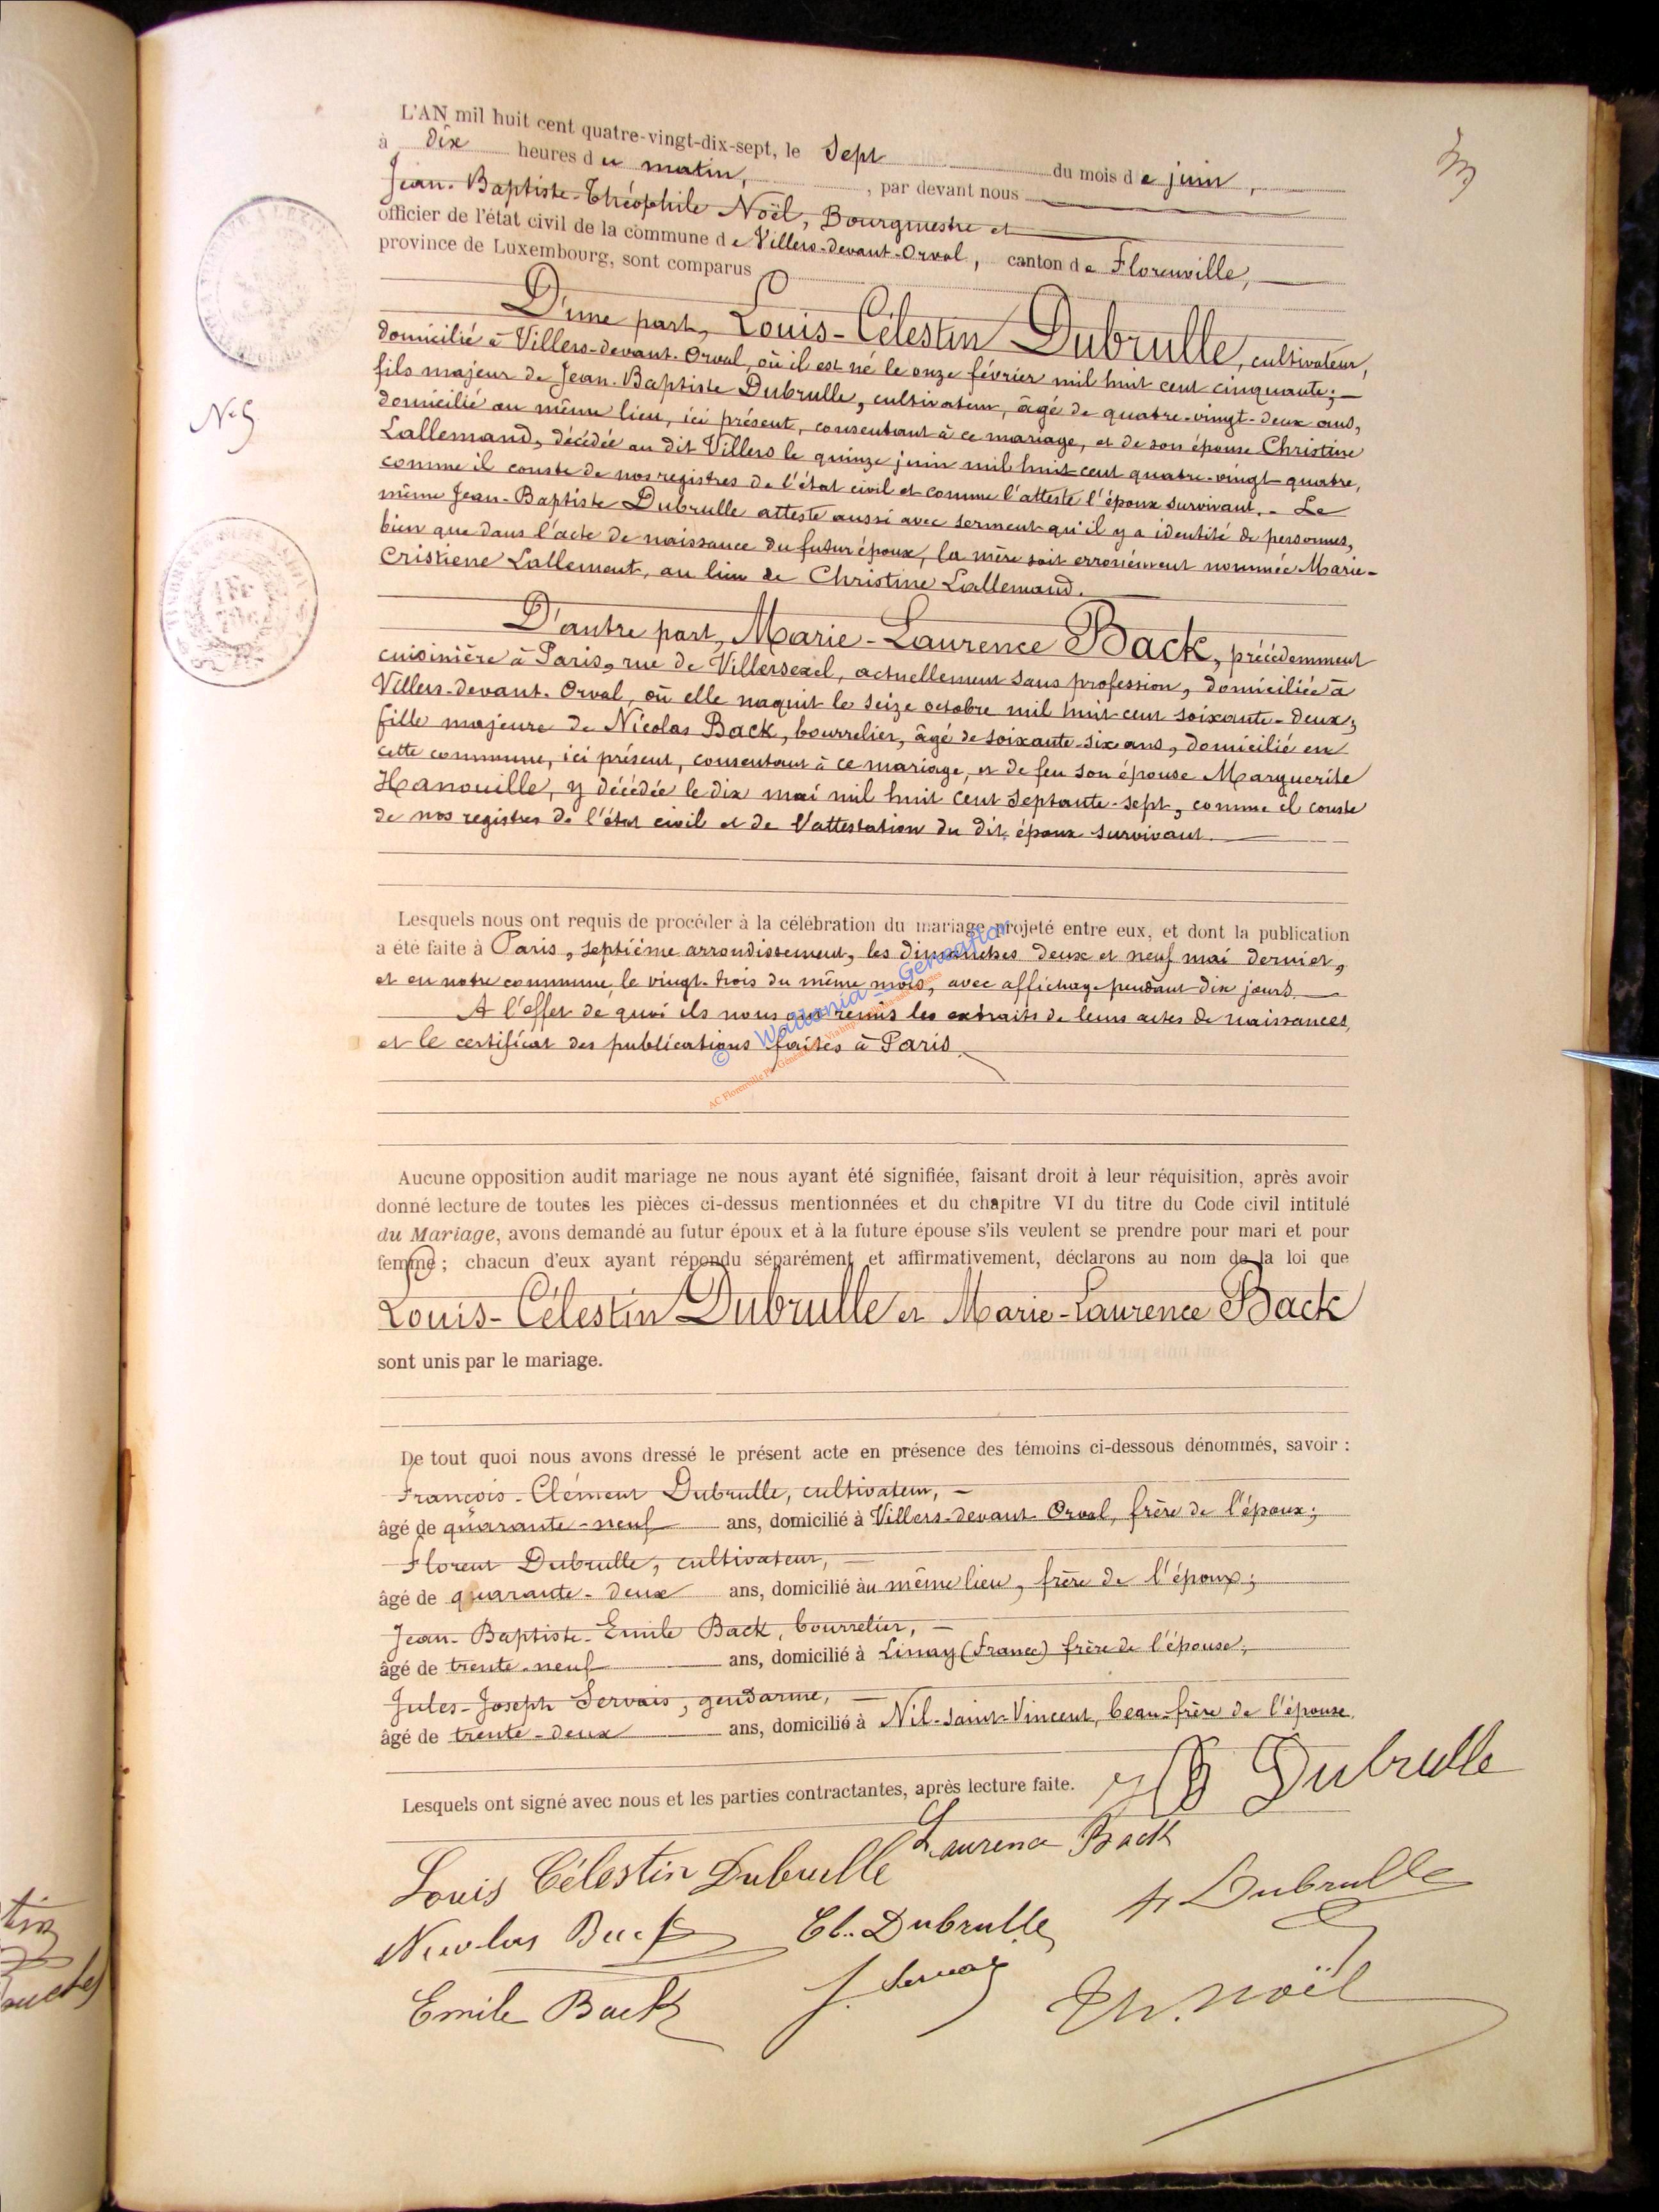 L'AN mil huit cent quatre-vingt-dix-sept, le Sept du mois de juin,
à dix heures du matin, , par devant nous
Jean-Baptiste-Théophile Noël, Bourgmestre et
officier de l'état civil de la commune de Villers-devant-Orval, canton de Florenville,
province de Luxembourg, sont comparus
D'une part, Louis-Célestin Dubrulle, cultivateur,
domicilié à Villers-devant-Orval, où il est né le onze février mil huit cent cinquante;
fils majeur de Jean-Baptiste Dubrulle, cultivateur, âgé de quatre-vingt-deux ans,
domicilié au même lieu, ici présent, consentant à ce mariage, et de son épouse Christine
Lallemand, décédée au dit Villers le quinze juin mil huit cent quatre-vingt-quatre,
comme il conste de nos registres de l'état civil et comme l'atteste l'époux survivant. - Le
même Jean-Baptiste Dubrulle atteste aussi avec serment qu'il y a identité de personnes,
bien que dans l'acte de naissance du futur époux, la mère soit erronément nommée Marie-
Cristiene Lallement, au lieu de Christine Lallemand.
N° 5
D'autre part, Marie-Laurence Back, précédemment
cuisinière à Paris, rue de Villersexel, actuellement sans profession, domiciliée à
Villers-devant-Orval, où elle naquit le seize octobre mil huit cent soixante-deux;
fille majeure de Nicolas Back, bourrelier, âgé de soixante-six ans, domicilié en
cette commune, ici présent, consentant à ce mariage, et de feu son épouse Marguerite
Hanouille, y décédée le dix mai mil huit cent septante-sept, comme il conste
de nos registres de l'état civil et de l'attestation du dit époux survivant.
Lesquels nous ont requis de procéder à la célébration du mariage projeté entre eux, et dont la publication
a été faite à Paris, septième arrondissement, les dimanches deux et neuf mai dernier,
et en notre commune, le vingt-trois du même mois, avec affichage pendant dix jours.
A l'effet de quoi ils nous ont remis les extraits de leurs actes de naissances,
et le certificat des publications faites à Paris.
© Wallonia - Geneafior
Aucune opposition audit mariage ne nous ayant été signifiée, faisant droit à leur réquisition, après avoir
donné lecture de toutes les pièces ci-dessus mentionnées et du chapitre VI du titre du Code civil intitulé
du Mariage, avons demandé au futur époux et à la future épouse s'ils veulent se prendre pour mari et pour
femme; chacun d'eux ayant répondu séparément et affirmativement, déclarons au nom de la loi que
Louis-Célestin Dubrulle et Marie-Laurence Back
sont unis par le mariage.
De tout quoi nous avons dressé le présent acte en présence des témoins ci-dessous dénommés, savoir :
François-Clément Dubrulle, cultivateur, -
âgé de quarante-neuf ans, domicilié à Villers-devant-Orval, frère de l'époux;
Florent Dubrulle, cultivateur, -
âgé de quarante-deux ans, domicilié au même lieu, frère de l'époux;
Jean-Baptiste-Emile Back, bourrelier, -
âgé de trente-neuf ans, domicilié à Linay (France) frère de l'épouse;
Jules-Joseph Servais, gendarme, -
âgé de trente-deux ans, domicilié à Nil-Saint-Vincent, beau-frère de l'épouse.
Lesquels ont signé avec nous et les parties contractantes, après lecture faite. JB Dubrulle
Laurence Back
Louis Célestin Dubrulle
Nicolas Back Cl. Dubrulle F Dubrulle
Emile Back J. Servais Th. Noël